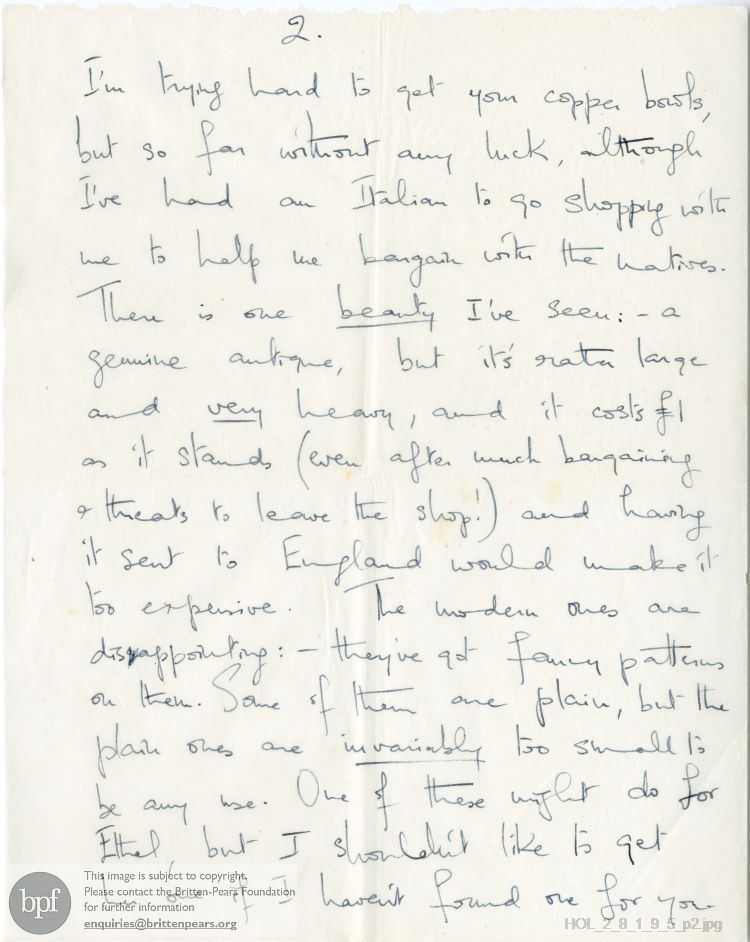 2.
I'm trying hard to get your copper bowls,
but so far without any luck, although
I've had an Italian to go shopping with
me to help me bargain with the natives.
There is one beauty I've seen: - a
genuine antique, but it's rather large
and very heavy, and it costs £1
as it stands (even after much bargaining
& threats to leave the shop!) and having
it sent to England would make it
too expensive. The modern ones are
disappointing: - they've got fancy patterns
on them. Some of them are plain, but the
plain ones are invariably too small to
be any use. One of these might do for
Ethel, but I shouldn't like to get
her one if I haven't found one for you.
bpf
This image is subject to copyright.
Please contact the Britten-Pears Foundation
for further information
enquiries@brittenpears.org
HOL_2_8_1_9_5_p2.jpg